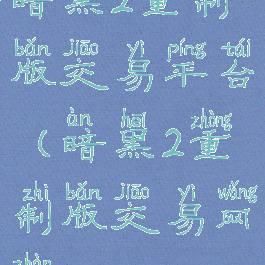 暗黑2重制
bǎn jiāo yì píng tái
版交易平台
àn hēi zhòng
(暗黑2重
zhì bǎn jiāo yì wǎng
制版交易网
zhàn